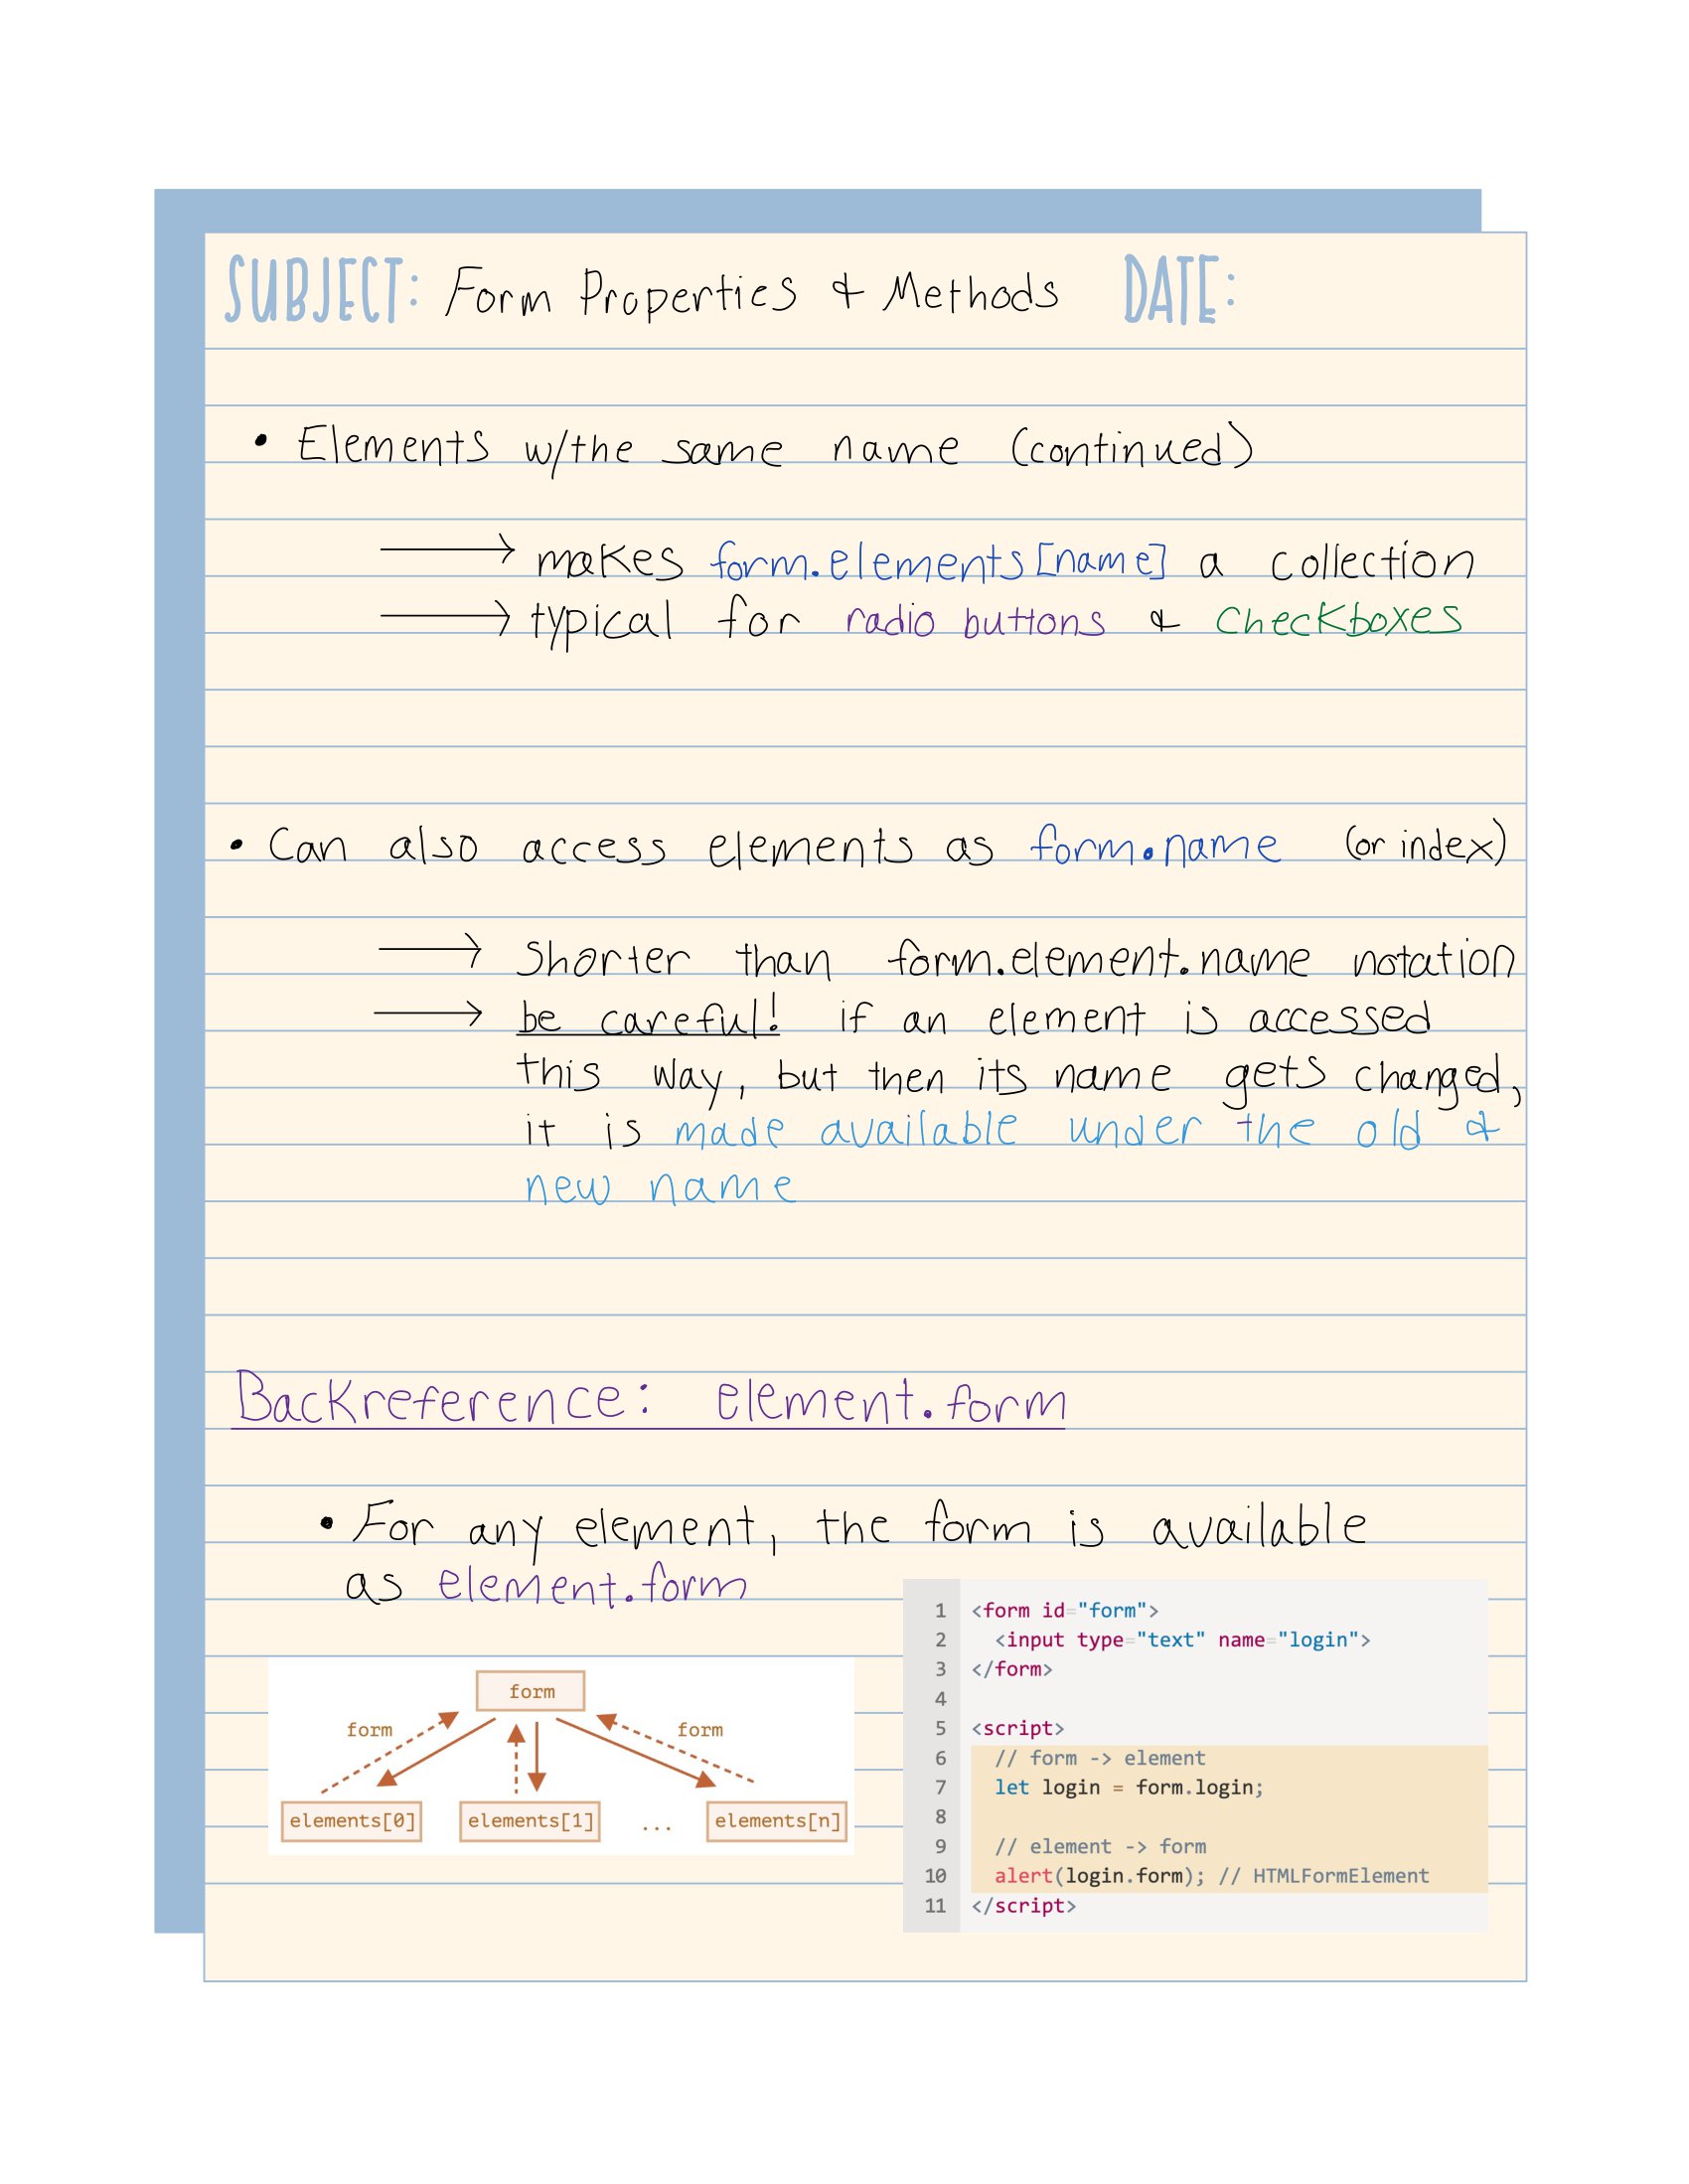 SUBJECT: Form Properties & Methods DATE:
• Elements w/the same name (continued)
→ makes form.elements[name] a collection
→ typical for radio buttons & checkboxes
• Can also access elements as form.name (or index)
→ Shorter than form.element.name notation
→ be careful! if an element is accessed
this way, but then its name gets changed,
it is made available under the old &
new name
Backreference: element.form
• For any element, the form is available
as element.form
form
form form
elements[0] elements[1] ... elements[n]
1 <form id="form">
2 <input type="text" name="login">
3 </form>
4
5 <script>
6 // form -> element
7 let login = form.login;
8
9 // element -> form
10 alert(login.form); // HTMLFormElement
11 </script>